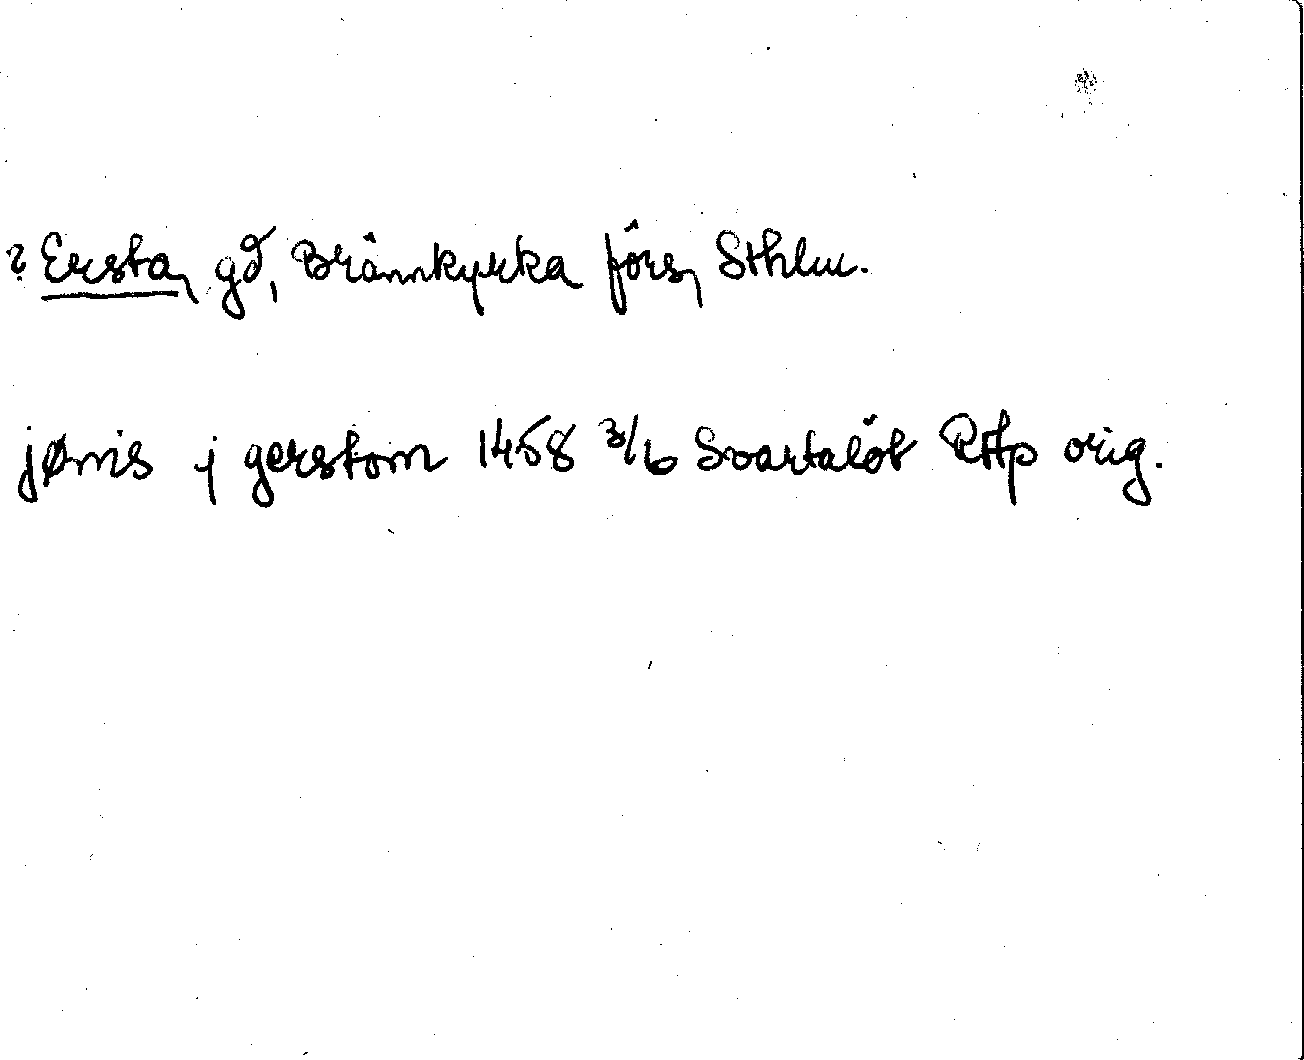 ? Ersta, gd, Brännkyrka förs, Sthlm.
jønis j gerstom 1458 3/6 Svartalöt RAp orig.